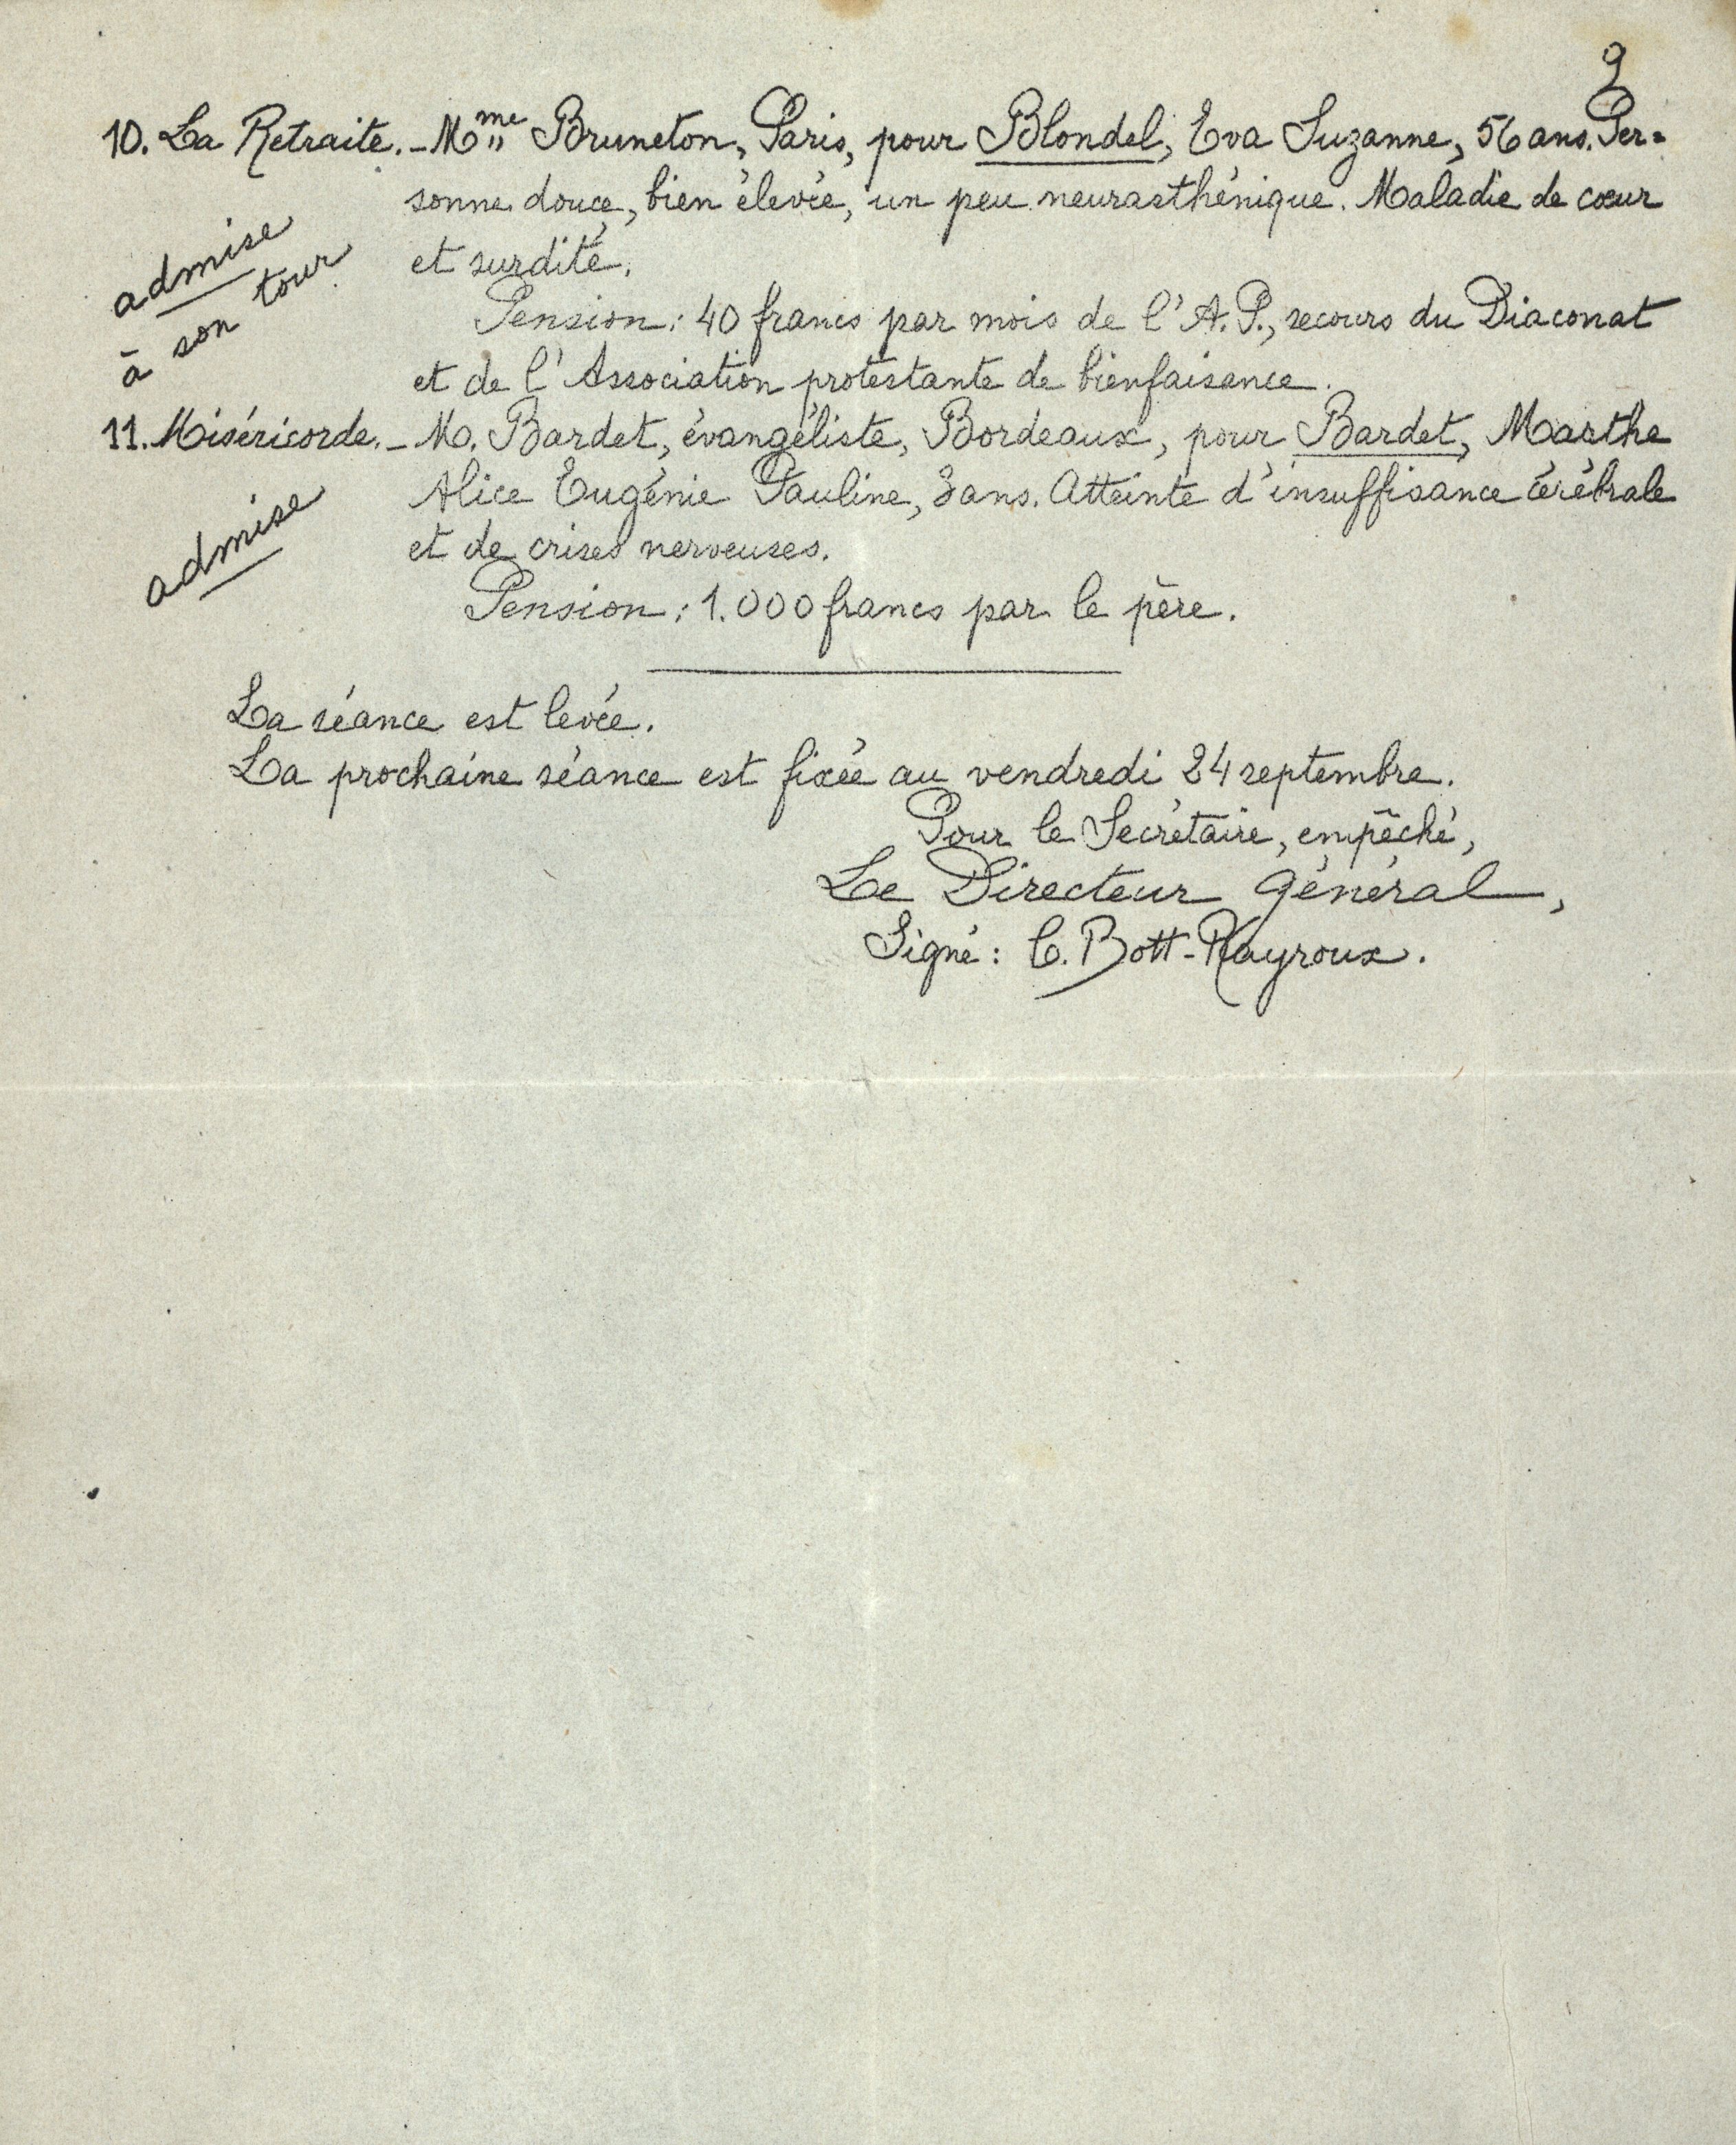 9
10. La Retraite. - Mme Bruneton, Paris, pour Blondel, Eva Suzanne, 56 ans. Per=
sonne douce, bien élevée, un peu neurasthénique. Maladie de cœur
et surdité.
admise
à son tour
Pension: 40 francs par mois de l'A. P., secours du Diaconat
et de l'Association protestante de bienfaisance.
11. Miséricorde. - M. Bardet, évangéliste, Bordeaux, pour Bardet, Marthe
Alice Eugénie Pauline, ans. Atteinte d'insuffisance cérébrale
et de crises nerveuses.
admise
Pension: 1.000 francs par le père.
La séance est levée.
La prochaine séance est fixée au vendredi 24 septembre.
Pour le Secrétaire, empêché,
Le Directeur Général,
Signé: C. Bott-Rayroux.